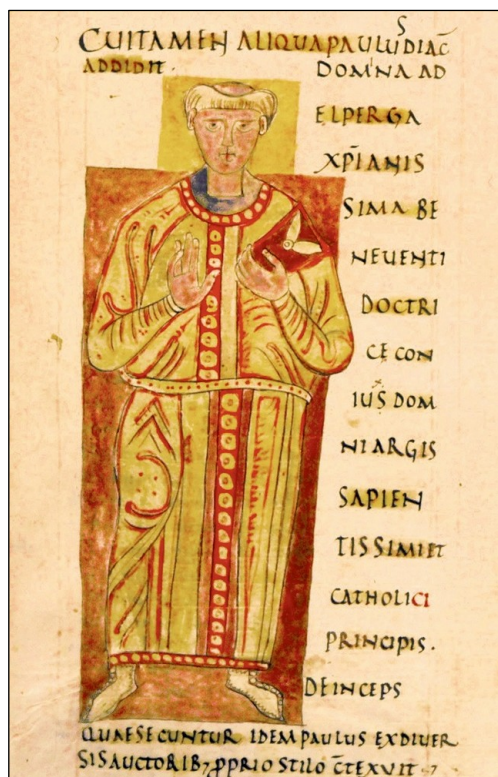 CUITAMEN ALIQUAPAULUSDIAC̄
ADDIDIT. DOMINA AD
ELPERGA
XP̄IANIS
SIMA BE
NEUENTI
DOCTRI
CE CON
IUS DOM
NIARGIS
SAPIEN
TISSIMIET
CATHOLICI
PRINCIPIS.
DEINCEPS
QUAESECUNTUR IDEM PAULUS EXDIUER
SISAUCTORIB; PPRIO STILO C̄TEXUIT